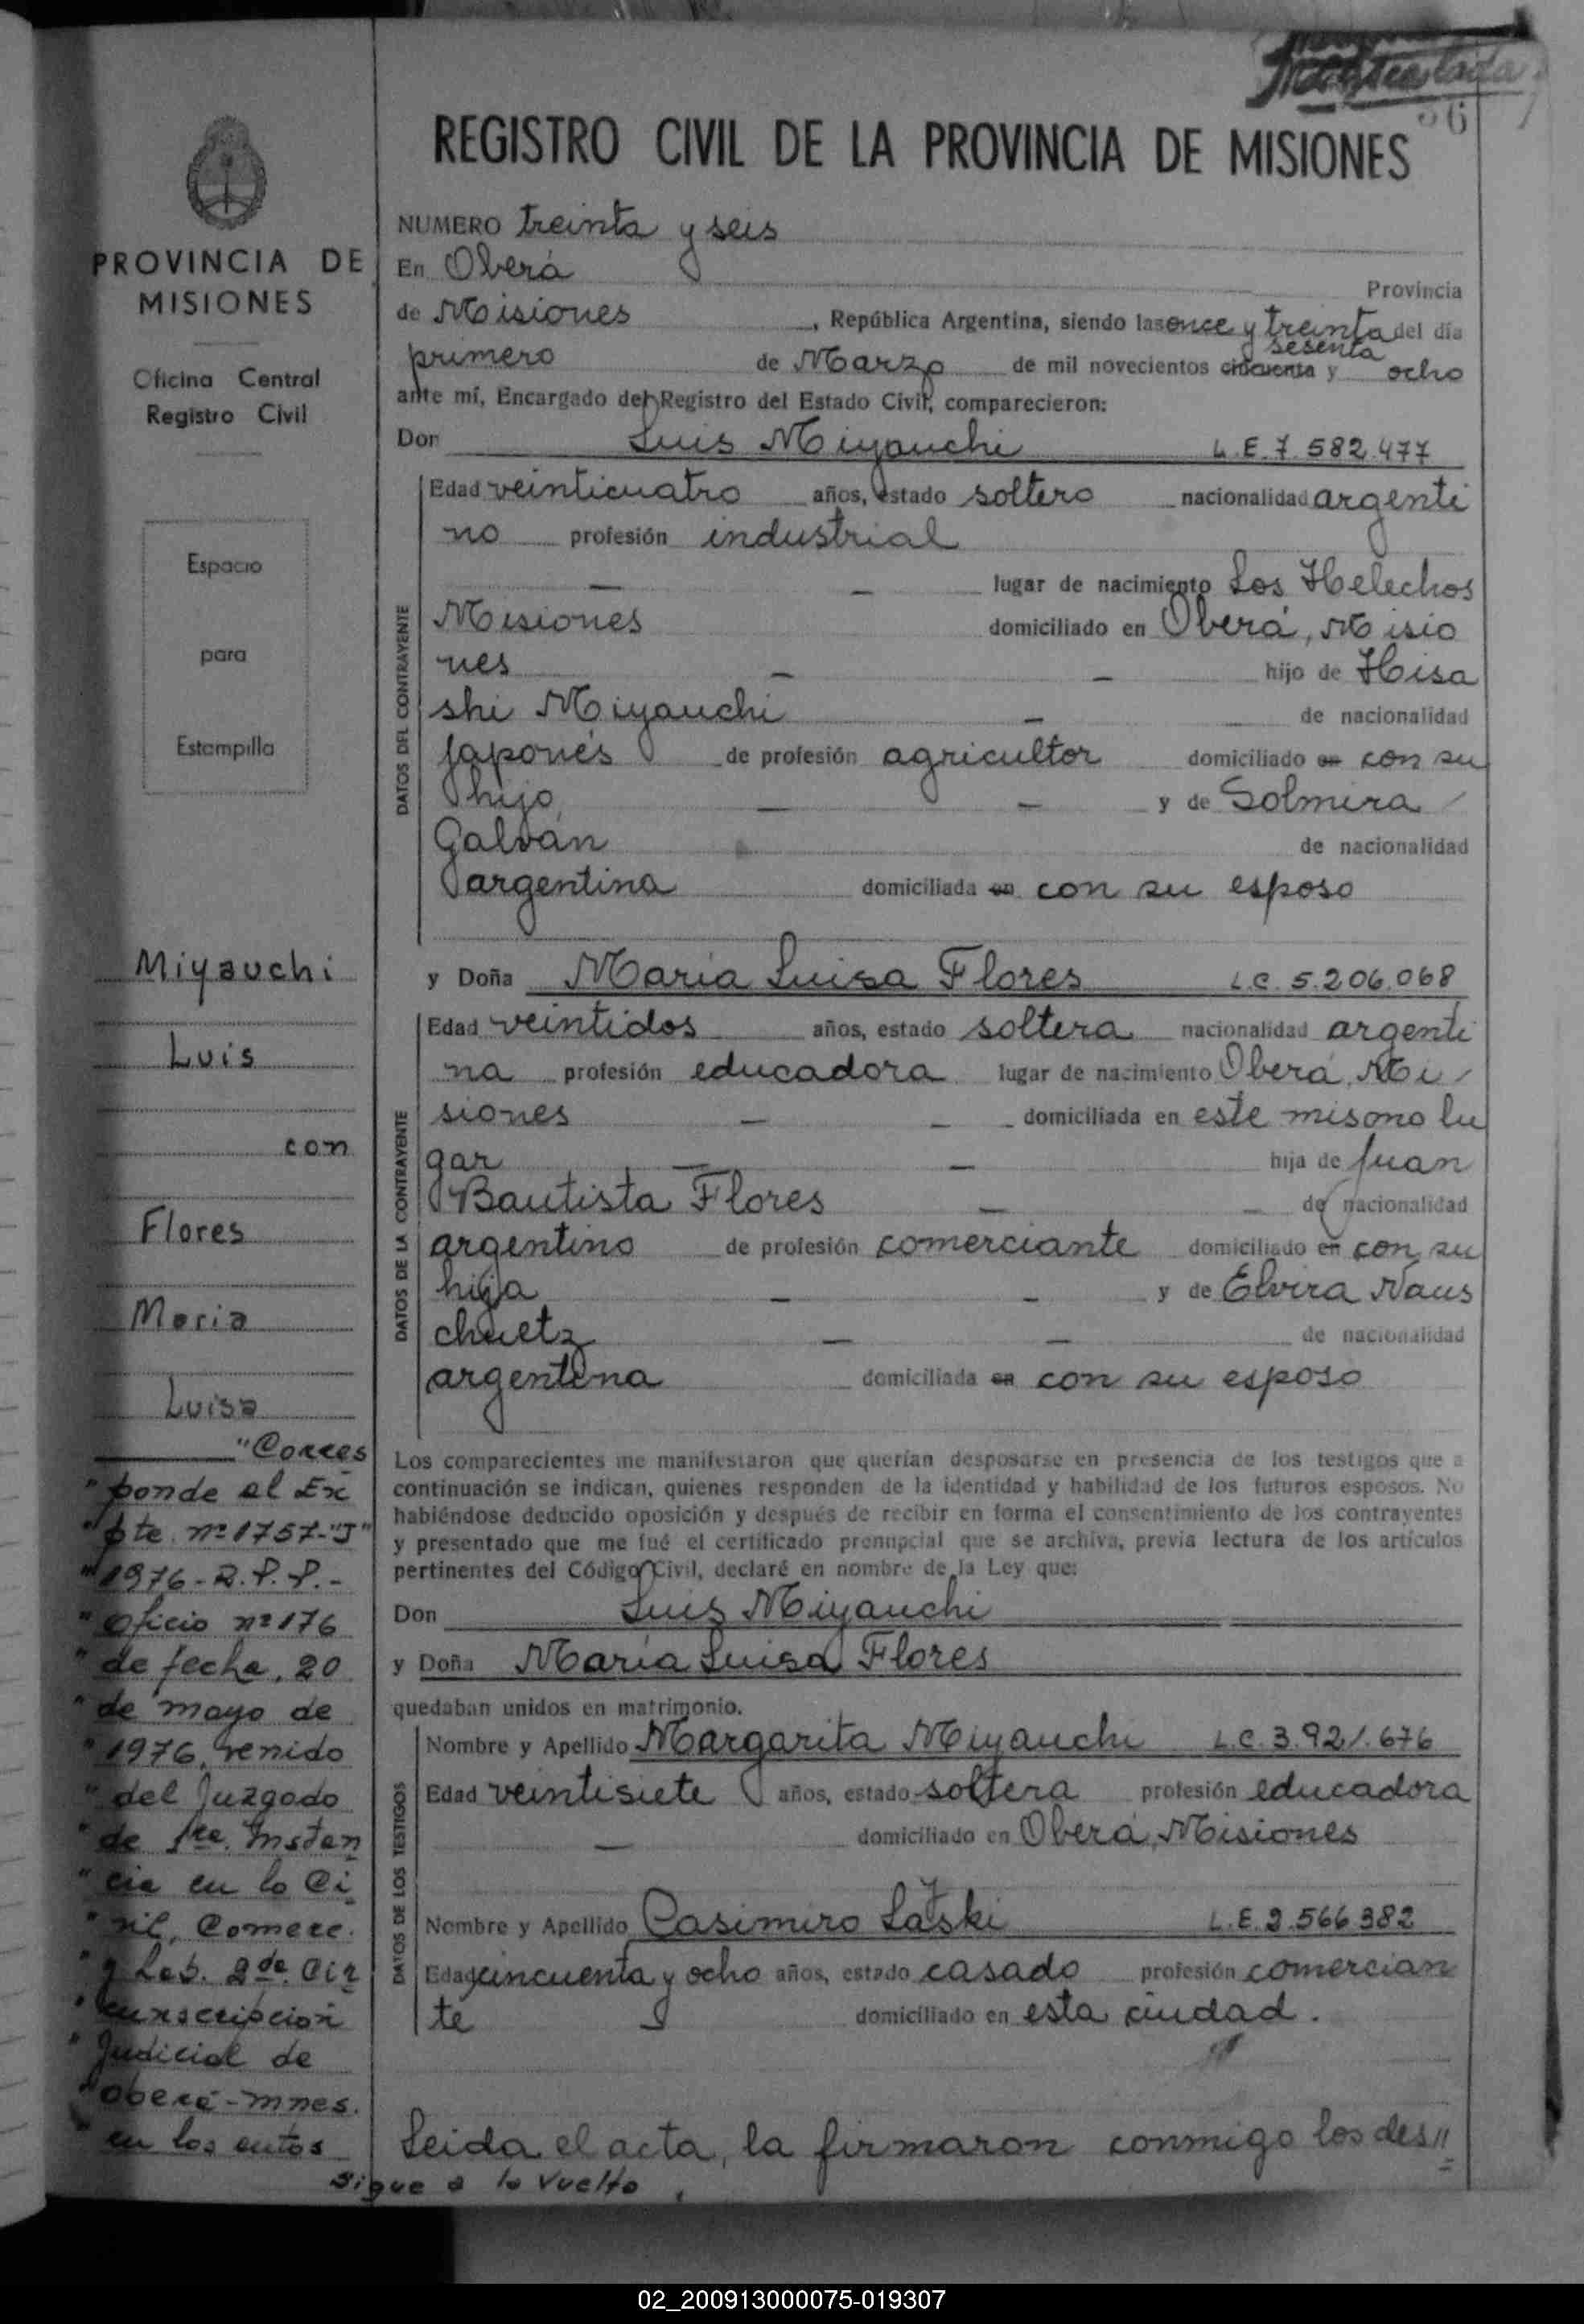 Microfilmada
36
REGISTRO CIVIL DE LA PROVINCIA DE MISIONES
NUMERO treinta y seis
En Oberá
Provincia
de Misiones , República Argentina, siendo las once y treinta del día
primero de Marzo de mil novecientos cincuenta y sesenta ocho
ante mí, Encargado del Registro del Estado Civil, comparecieron:
Don Luis Miyauchi L.E. 7.582.477
DATOS DEL CONTRAYENTE
Edad veinticuatro años, estado soltero nacionalidad argenti
no profesión industrial
— — lugar de nacimiento Los Helechos
Misiones domiciliado en Oberá, Misio
nes — — hijo de Hisa
shi Miyauchi — de nacionalidad
japonés de profesión agricultor domiciliado en con su
hijo — — y de Solmira
Galván de nacionalidad
argentina domiciliada en con su esposo
y Doña María Luisa Flores L.C. 5.206.068
DATOS DE LA CONTRAYENTE
Edad veintidos años, estado soltera nacionalidad argenti
na profesión educadora lugar de nacimiento Oberá, Mi
siones — — domiciliada en este mismo lu
gar — — hija de Juan
Bautista Flores — — de nacionalidad
argentino de profesión comerciante domiciliado en con su
hija — — y de Elvira Naus
chuetz — — de nacionalidad
argentina domiciliada en con su esposo
Los comparecientes me manifestaron que querían desposarse en presencia de los testigos que a
continuación se indican, quienes responden de la identidad y habilidad de los futuros esposos. No
habiéndose deducido oposición y después de recibir en forma el consentimiento de los contrayentes
y presentado que me fué el certificado prenupcial que se archiva, previa lectura de los artículos
pertinentes del Código Civil, declaré en nombre de la Ley que:
Don Luis Miyauchi
y Doña María Luisa Flores
quedaban unidos en matrimonio.
DATOS DE LOS TESTIGOS
Nombre y Apellido Margarita Miyauchi L.C. 3.921.676
Edad veintisiete años, estado soltera profesión educadora
— domiciliado en Oberá, Misiones
Nombre y Apellido Casimiro Laski L.E. 2.566.382
Edad cincuenta y ocho años, estado casado profesión comercian
te domiciliado en esta ciudad.
Leida el acta, la firmaron conmigo los des//
PROVINCIA DE
MISIONES
Oficina Central
Registro Civil
Espacio
para
Estampilla
Miyauchi
Luis
con
Flores
Maria
Luisa
"Corres
"ponde al Ex
"pte. nº 1757-"J"
"1976-R.P.P.-
"Oficio nº 176
"de fecha, 20
"de mayo de
"1976, venido
"del Juzgado
"de 1ra. Instan
"cia en lo Ci
"vil, Comerc.
"y Lab. 2da. Cir
"cunscripción
"Judicial de
"Oberá-Mnes.
"en los autos
Sigue a la vuelta
02_200913000075-019307